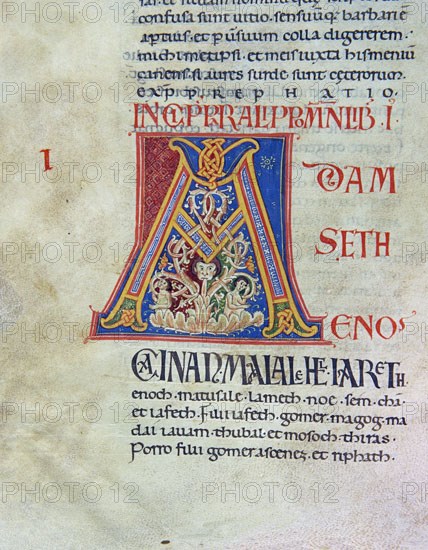 sar. et nesdum nominum que
confusa sunt vitio. sensuūq; barbariē
aptius et p̄ uersum colla digererem.
michimet ipsi et meis iuxta hismeniū
canens. si aures surde sunt ceterorum.
EXP PREPHATIO.
INCĪP LIB RALIPPOMN̄ LIB. I
I
A
DAM
SETH
ENOS
CAINAN. MALALEHEL. IARETH
enoch. matusale. lamech. noe. sem. chā.
et iafeth. Filii iafeth. gomer. magog. ma
dai. iauan. thubal. et mosoch. thiras.
Porro filii gomer. ascenez. et riphath.
PHOTO12